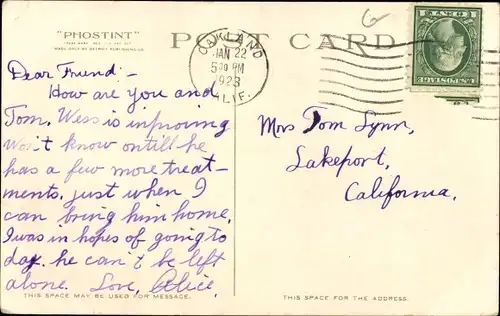 "PHOSTINT"
POST CARD
6
OAKLAND
JAN 22
5 30 PM
1923
CALIF.
Dear Friend:-
How are you and
Tom. Wess is improving
Won't know ontill he
has a few more treat-
ments. just when I
can bring him home.
I was in hopes of going to
day. he can't be left
alone. Love, Alice.
Mrs Tom Lynn,
Lakeport,
California.
THIS SPACE MAY BE USED FOR MESSAGE.
THIS SPACE FOR THE ADDRESS.